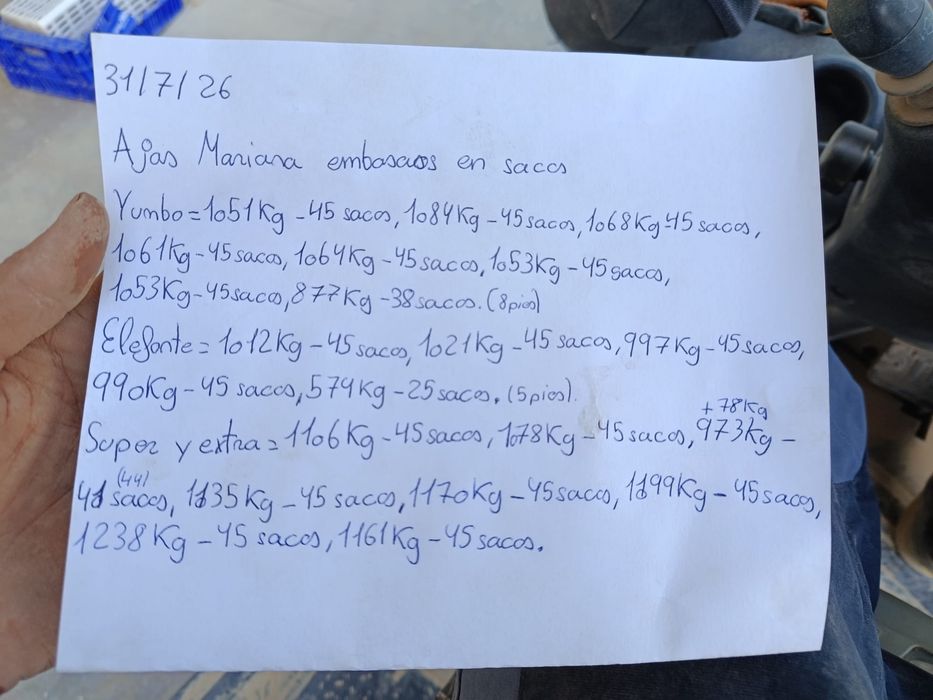 31/7/26
Ajos Mariana embasados en sacos
Yumbo=1051Kg-45 sacos, 1084Kg-45sacos, 1068Kg-45 sacos,
1061Kg-45sacos, 1064Kg-45sacos, 1053Kg-45sacos,
1053Kg-45sacos, 877Kg-38sacos. (8pios)
Elefante=1012Kg-45sacos, 1021Kg-45 sacos, 997Kg-45sacos,
990Kg-45 sacos, 574Kg-25 sacos. (5pios).
+78Kg
Super y extra=1106Kg-45sacos, 1078Kg-45sacos, 973Kg-
(44)
41 sacos, 1135Kg-45 sacos, 1170Kg-45sacos, 1199Kg-45sacos,
1238Kg-45 sacos, 1161Kg-45sacos.